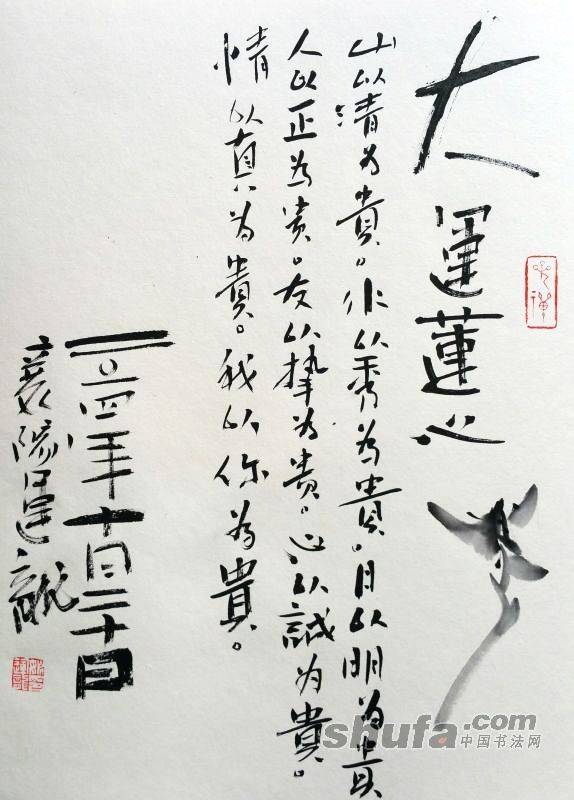 大運蓮心
山以清为貴。水以秀為貴。月以明为貴
人以正為贵。友以挚為贵。心以誠为貴。
情以真為貴。我以你為貴。
二〇一四年十月二十日
襄陽建龍
shufa.com
中国书法网